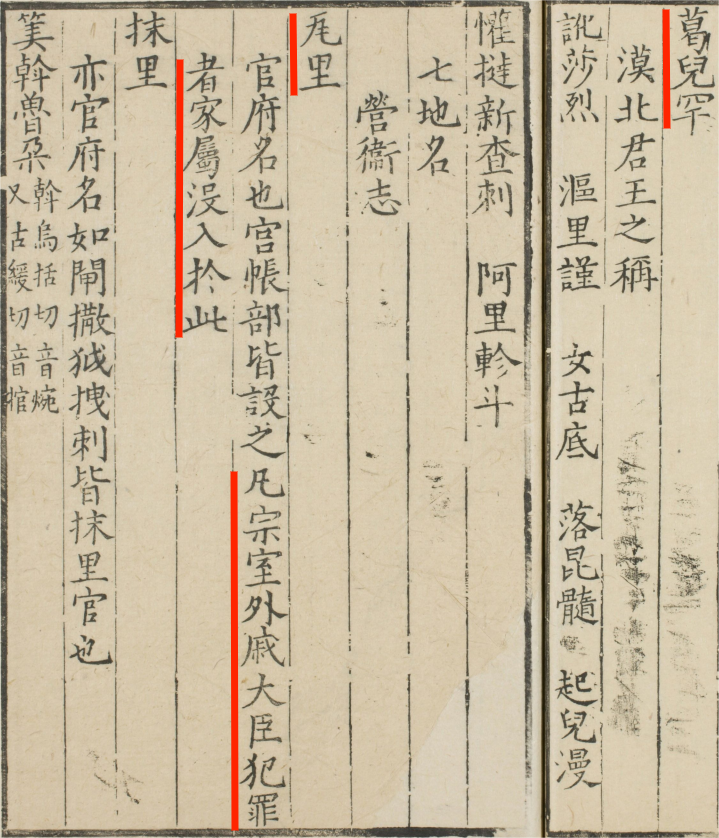 葛兒罕
漠北君王之稱
訛莎烈　漚里謹　女古底　落昆髓　起兒漫
懽撻新查剌　阿里軫斗
七地名
營衞志
瓦里
官府名也宫帳部皆設之凡宗室外戚大臣犯罪
者家屬没入於此
抹里
亦官府名如閘撒狘拽剌皆抹里官也
筭斡魯朶
斡烏括切音
又古緩切音